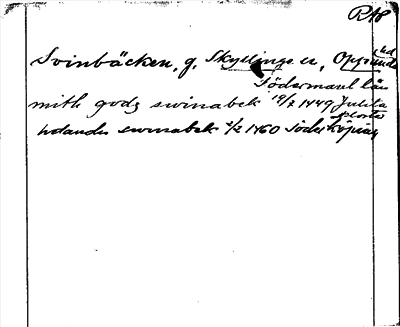 RA8
Svinbäcken, g. Skyllinge sn, Oppunda hd
Södermanl. län
mith godz swinabek 19/7 1449 Julita
kloster
swinabek 2/2 1460 Söderköping